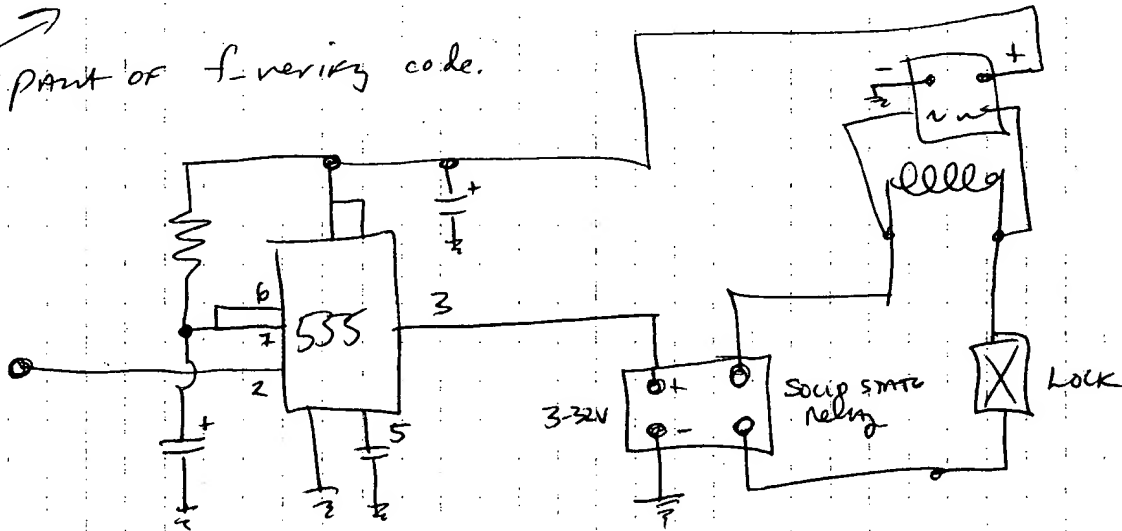 PART OF code.
- +
~ ~
+
6
7
555
3
2
5
+
3-32V
+
-
SOLID STATE
relay
LOCK